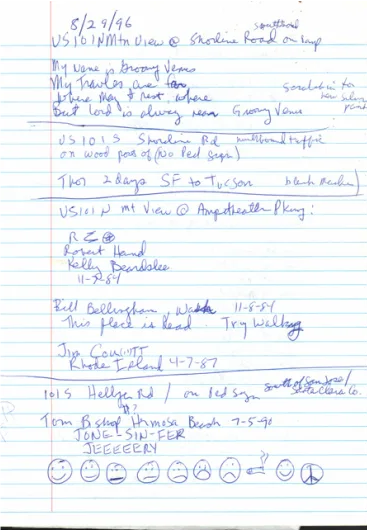 8/29/96
southbound
US 101 N Mtn View @ Shoreline Road on ramp
My name is Groovy Venus
My Travles are far
where may I rest, where
But Lord is always near Groovy Venus
Scratched in
paint
US 101 S Shoreline Rd northbound traffic
on wood post of (No Ped Sign)
Thor 2 days SF to Tucson black marker)
US 101 N Mt View @ Ampitheather Pkwy:
R Σ ⊕
Robert Hand
Kelly Beardslee
11-7-84
Bill Bellingham, Wash 11-8-84
This place is Dead Try Walking
Jim
Rhode Island 4-7-87
101 S Hellyer Rd / on Ped Sign South of San Jose/
Santa Clara Co.
Tom Bishop Hermosa Beach 7-5-90
JONE-SIN-FER
JEEEEERY